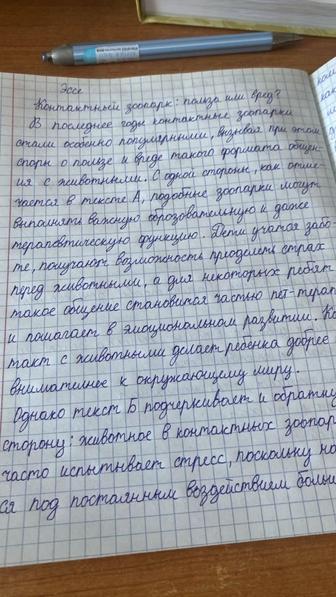 Эссе
Контактный зоопарк: польза или вред?
В последнее годы контактные зоопарки
стали особенно популярными, вызывая при этом
споры о пользе и вреде такого формата общен-
ия с животными. С одной стороны, как отме-
чается в тексте А, подобные зоопарки могут
выполнять важную образовательную и даже
терапевтическую функцию. Дети учатся забо-
те, получают возможность преодолеть страх
перед животными, а для некоторых ребят
такое общение становится частью пет-терап
и помогает в эмоциональном развитии. Ко
такт с животными делает ребенка добрее
внимателнее к окружающему миру.
Однако текст Б подчеркивает и обратну
сторону: животное в контактных зоопар
часто испытывает стресс, поскольку на
ся под постоянным воздействием больш